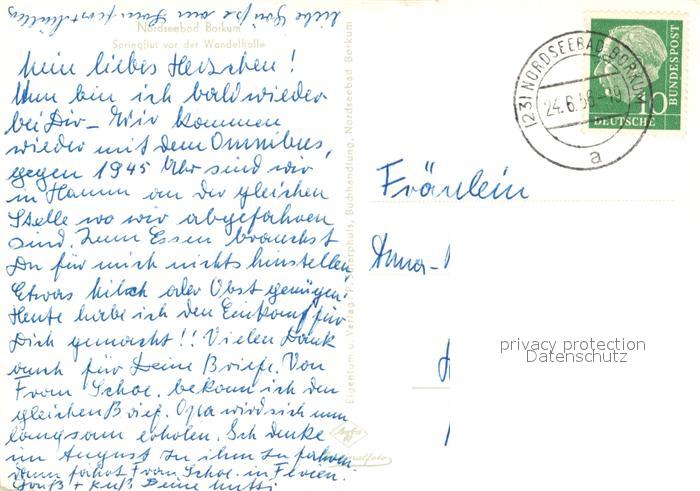 liebe Grüße an
Nordseebad Borkum
Springflut vor der Wandelhalle
Mein liebes Herzchen!
Nun bin ich bald wieder
bei Dir – Wir kommen
wieder mit dem Omnibus,
gegen 1945 Uhr sind wir
in Hamm an der gleichen
Stelle wo wir abgefahren
sind. Zum Essen brauchst
Du für mich nichts hinstellen
Etwas Milch oder Obst genügen!
Heute habe ich den Einkauf für
Dich gemacht!! Vielen Dank
auch für Deine Briefe. Von
Frau Schoe. bekam ich den
gleichen Brief. Opa wird sich nun
langsam erholen. Ich denke
im August zu ihm zu fahren
dann fährt Frau Schoe. in Ferien.
Gruß + Kuß Deine Mutti
Eigentum u. Verlag: Buchhandlung, Nordseebad Borkum
Agfa
(23) NORDSEEBAD BORKUM
24.6.56-10
a
10
DEUTSCHE
BUNDESPOST
Fräulein
Anna-
privacy protection
Datenschutz